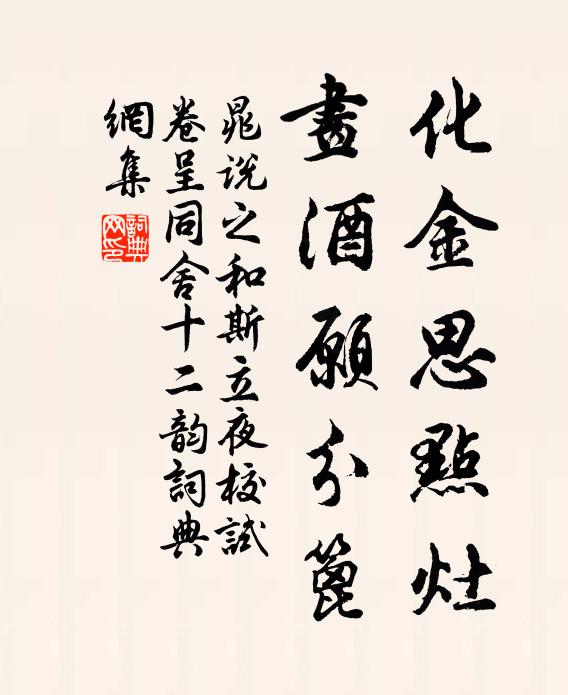 化金思點灶
畫酒願分篦
晁說之和斯立夜校試
卷呈同舍十二韵詞典
網集
詞典
網印